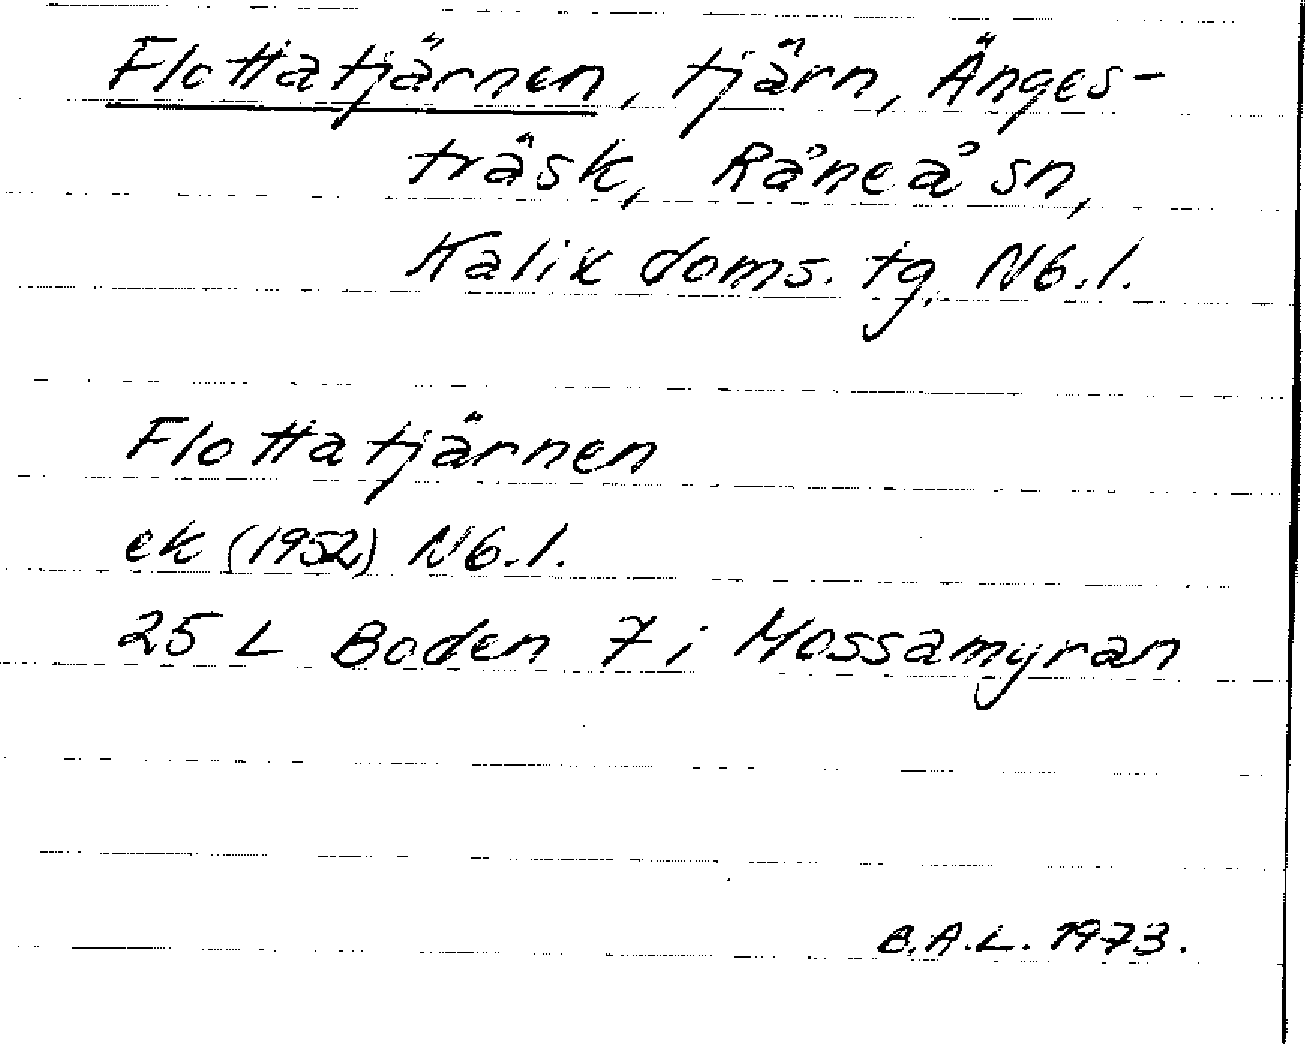 Flottatjärnen, tjärn, Änges-
träsk, Råneå sn,
Kalix doms. tg, Nb.l.
Flottatjärnen
ek (1952) Nb.l.
25 L Boden 7 i Mossamyran
B.A.L. 1973.